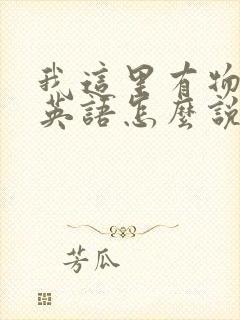 我這里有物
英語怎麼說
芳瓜